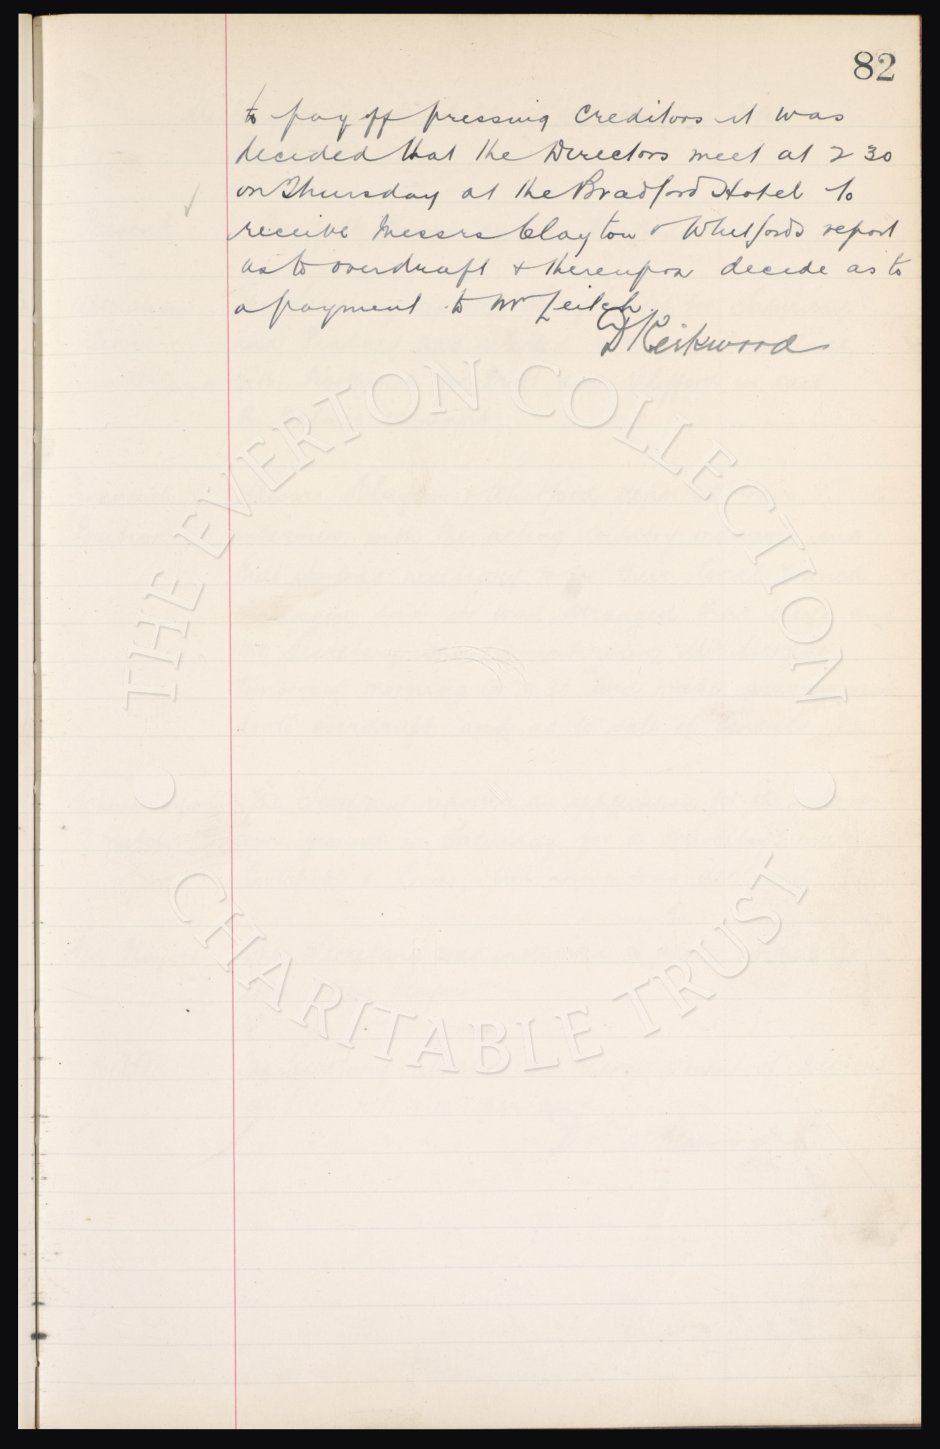 82
to pay off pressing Creditors it was
decided that the Directors meet at 2 30
on Thursday at the Bradford Hotel to
receive Messrs Clayton & Whitfords report
as to overdraft & thereupon decide as to
a payment to Mr Leitch
D Kirkwood
THE EVERTON COLLECTION
CHARITABLE TRUST